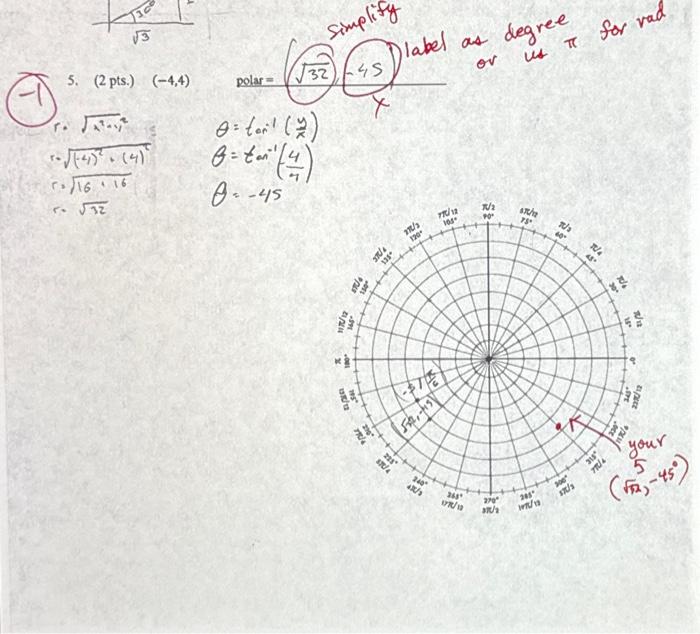 30°
√3
Simplify
label as degree
or us π for rad
-1
5. (2 pts.) (-4,4) polar = (√32, -45)
x
r = √x²+y²
r = √(-4)² + (4)²
r = √16 + 16
r = √32
θ = tan⁻¹ (y/x)
θ = tan⁻¹ (4/-4)
θ = -45
π/2 90°
5π/12 75°
π/3 60°
π/4 45°
π/6 30°
π/12 15°
0°
7π/12 105°
2π/3 120°
3π/4 135°
5π/6 150°
11π/12 165°
π 180°
13π/12 195°
7π/6
225° 5π/4
240° 4π/3
255° 17π/12
270° 3π/2
285° 19π/12
300° 5π/3
315° 7π/4
11π/6
345° 23π/12
(√32, -45)
your
5
(√32, -45°)